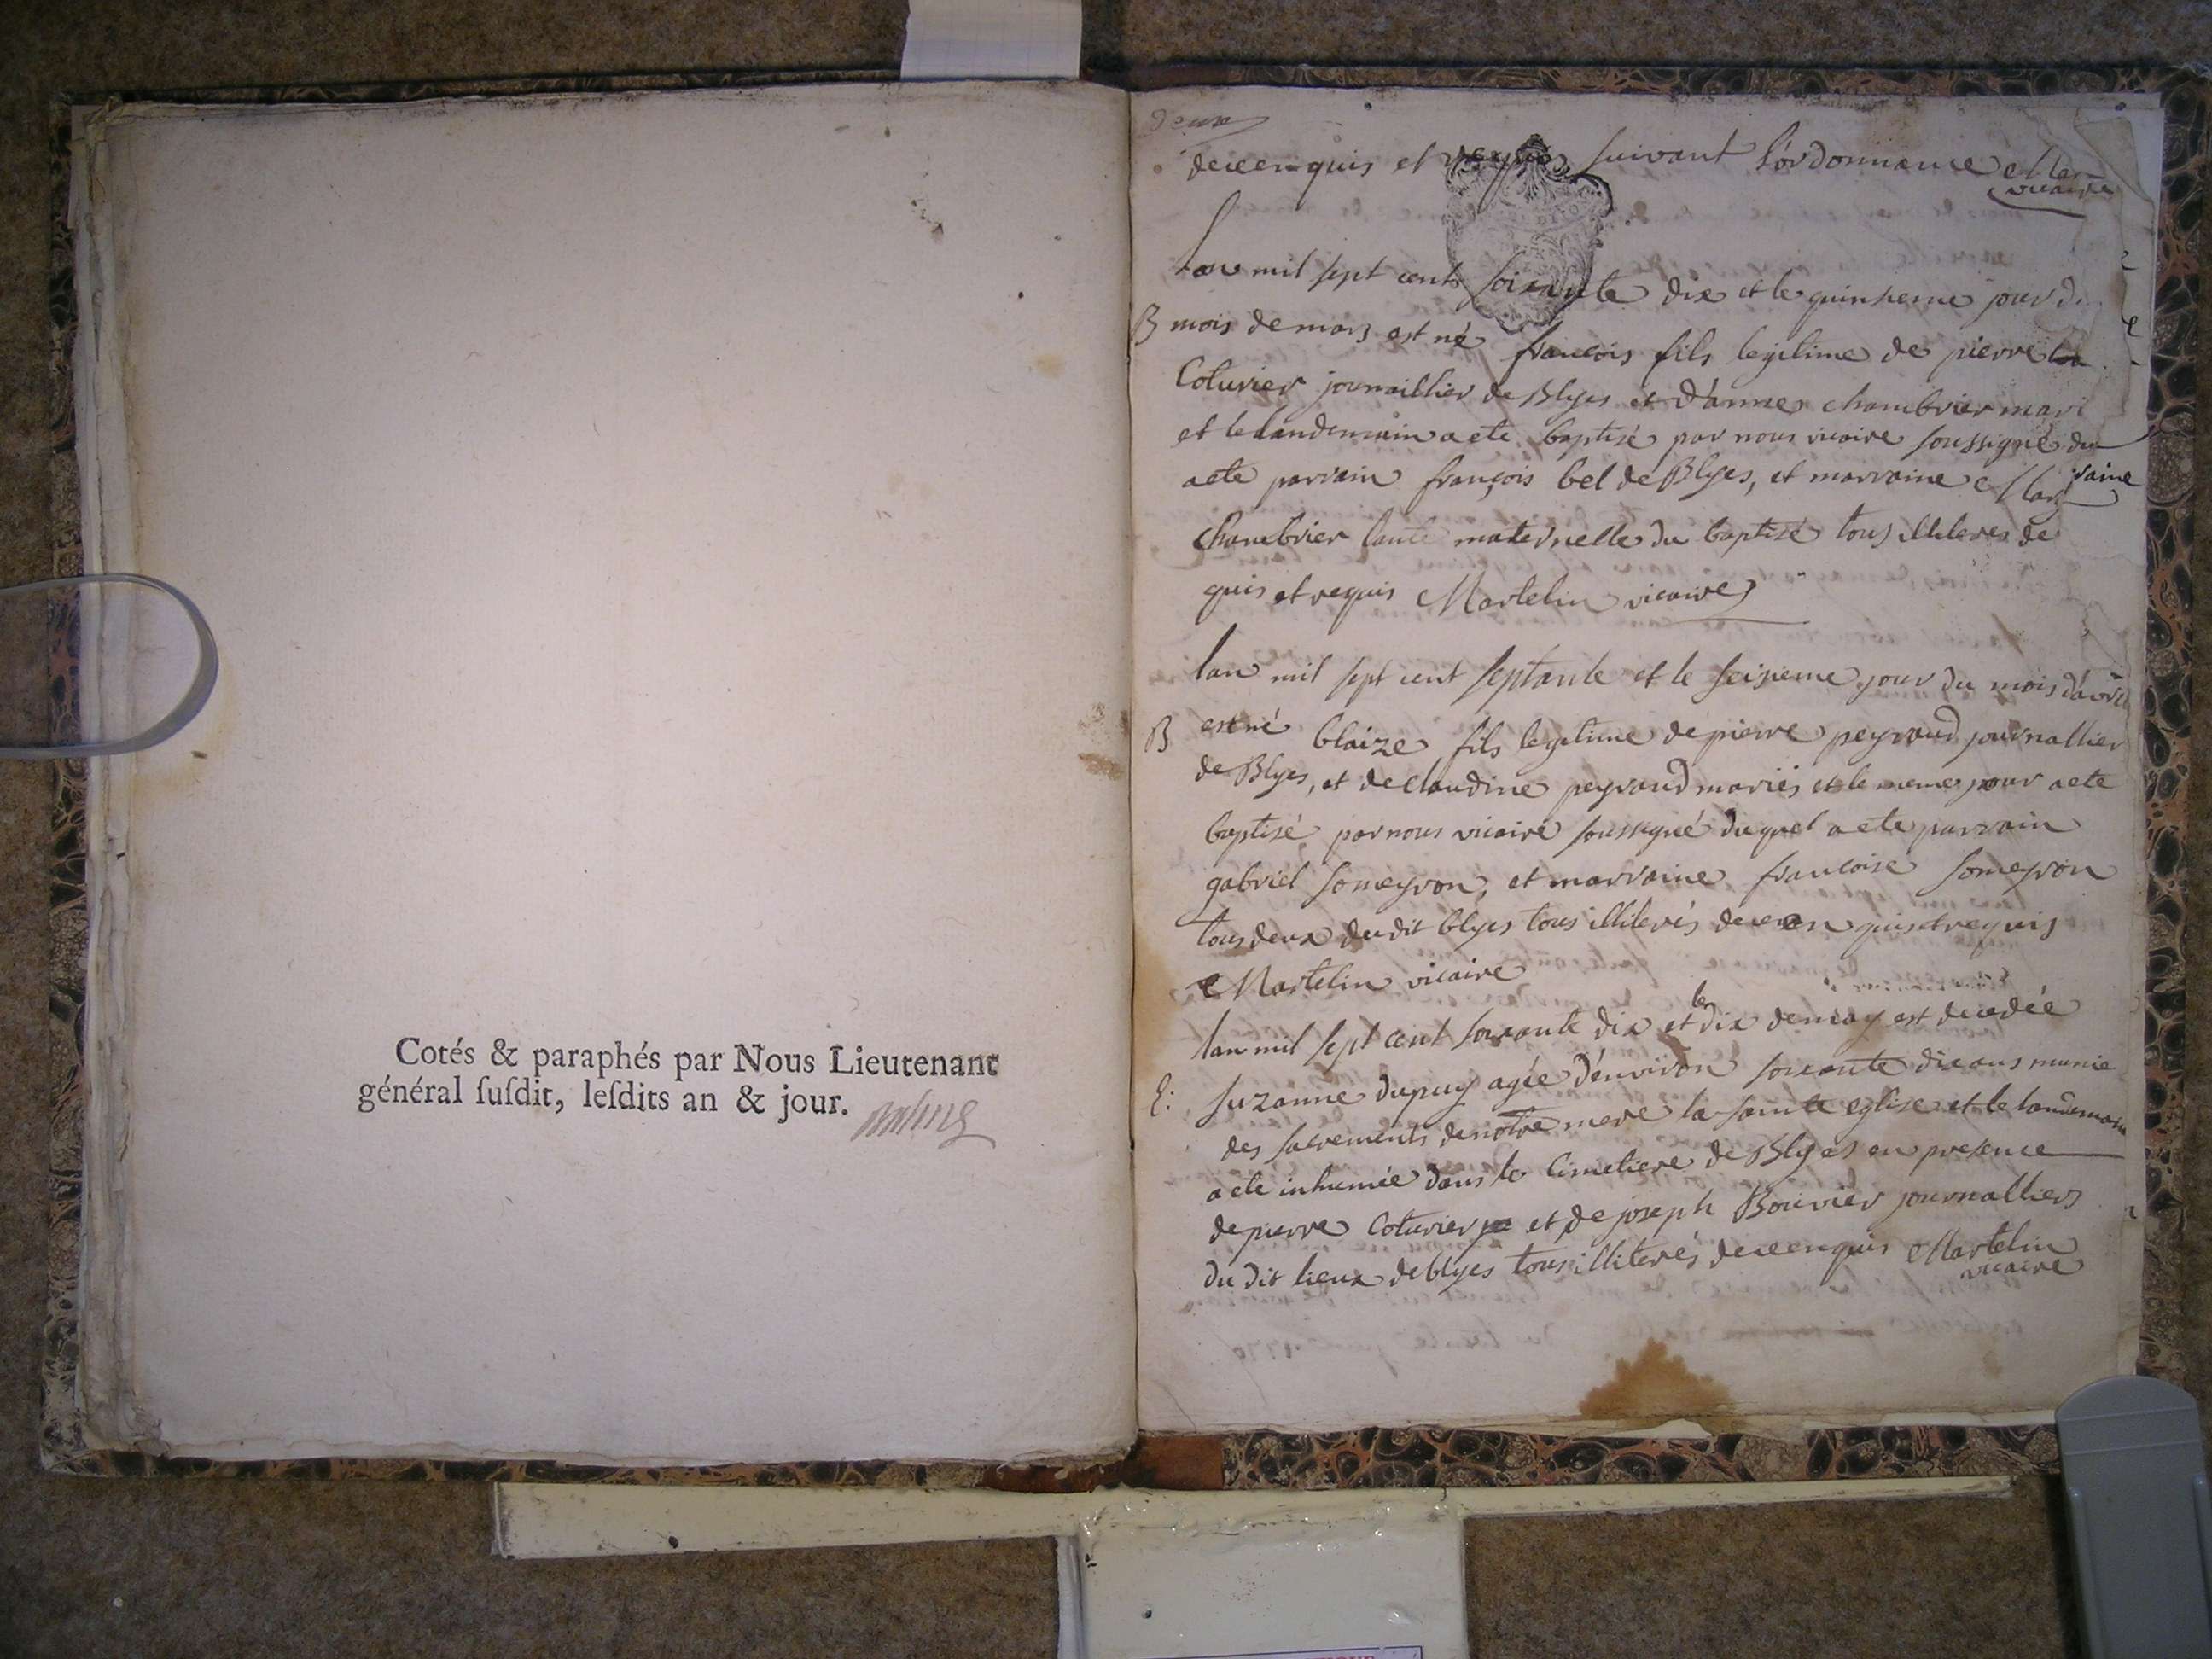 Cotés & paraphés par Nous Lieutenant
général ſuſdit, leſdits an & jour.
deux
de ce enquis et requis suivant l'ordonnance
vicaire
Lan mil sept cent soixante dix et le quinsieme jour d
B mois de mars est né francois fils legitime de pierre
Coturier journallier de Blyes et d'anne chambrier mari
et le landemain a ete baptisé par nous vicaire soussigné du
a ete parrain françois bel de Blyes, et marraine
chambrier tante maternelle du baptisé tous illiteres de
quis et requis Martelin vicaire
lan mil sept cent septante et le seisieme jour du mois d'avri
B est né blaize fils legitime de pierre peyraud journallier
de Blyes, et de claudine peyraud mariés et le meme jour a ete
baptisé par nous vicaire soussigné duquel a ete parrain
gabriel someyron, et marraine francoise someyron
tous deux du dit blyes tous illiterés de ce enquis et requis
Martelin vicaire
lan mil sept cent soixante dix et le dix de may est decedée
E: suzanne dupuy agée d'environ soixante dix ans munie
des sacrements de notre mere la sainte eglise et le landemain
a ete inhumée dans le cimetiere de Blyes en presence
de pierre Coturier et de joseph Bouvier journalliers
du dit lieux de blyes tous illiterés de ce enquis Martelin
vicaire